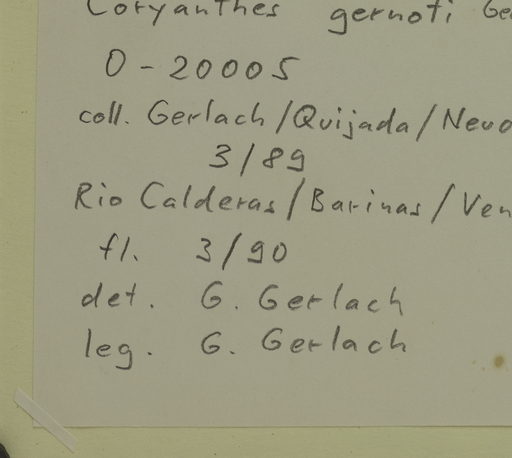 Coryanthes gernoti Ge
O - 20005
coll. Gerlach / Quijada / Nevo
3 / 89
Rio Calderas / Barinas / Ven
fl. 3 / 90
det. G. Gerlach
leg. G. Gerlach